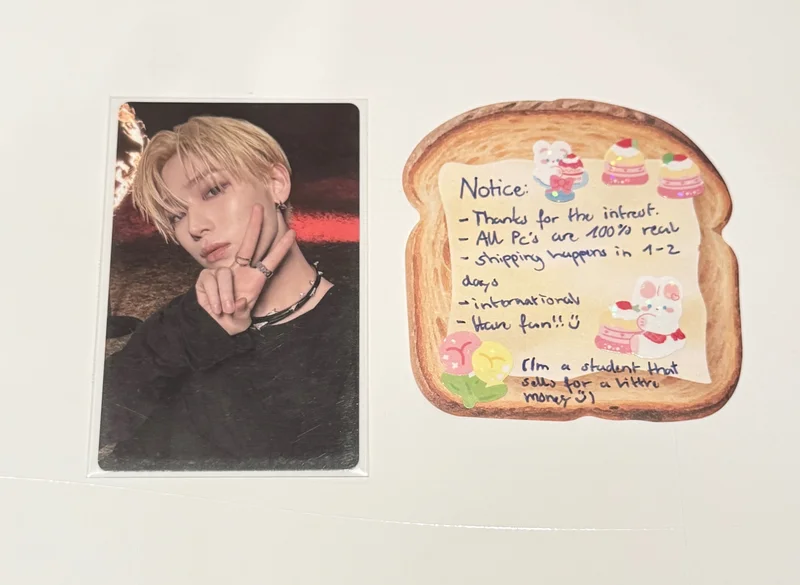 Notice:
- Thanks for the intrest.
- All Pc's are 100% real
- shipping happens in 1-2
days
- international
- Have fun!! :)
(I'm a student that
sells for a little
money :))